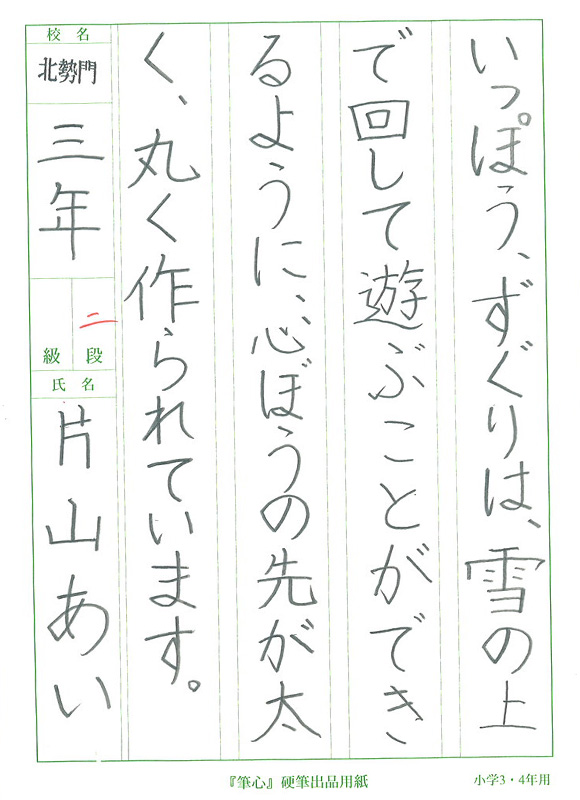 いっぽう、ずぐりは、雪の上
で回して遊ぶことができ
るように、心ぼうの先が太
く、丸く作られています。
校名
北勢門
三年
二
級 段
氏名
片山あい
『筆心』硬筆出品用紙
小学3・4年用